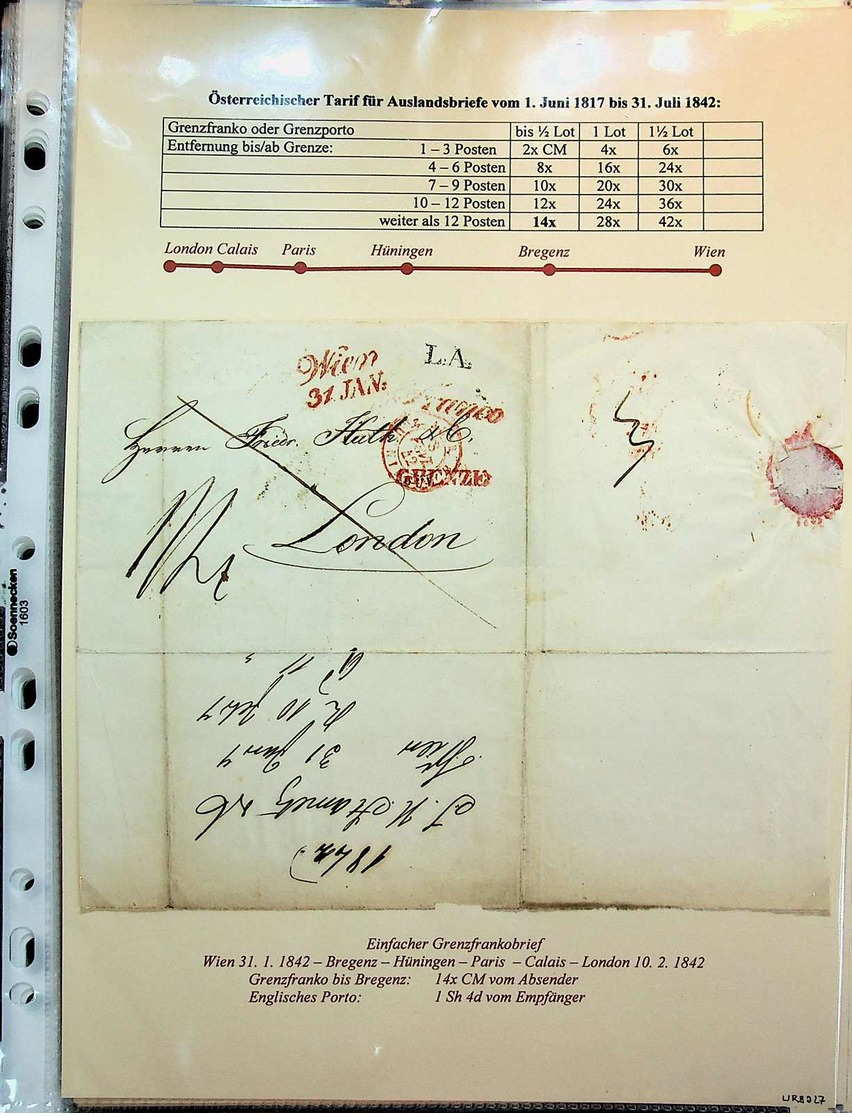 Österreichischer Tarif für Auslandsbriefe vom 1. Juni 1817 bis 31. Juli 1842:
Grenzfranko oder Grenzporto bis ½ Lot 1 Lot 1½ Lot
Entfernung bis/ab Grenze: 1 – 3 Posten 2x CM 4x 6x
4 – 6 Posten 8x 16x 24x
7 – 9 Posten 10x 20x 30x
10 – 12 Posten 12x 24x 36x
weiter als 12 Posten 14x 28x 42x
London Calais Paris Hüningen Bregenz Wien
Wien
31 JAN.
L.A.
Franco
GRENZE
Herren Friedr. Huth & Co.
London
1842
J. H. Stametz & Co
Wien 31 Janr
Einfacher Grenzfrankobrief
Wien 31. 1. 1842 – Bregenz – Hüningen – Paris – Calais – London 10. 2. 1842
Grenzfranko bis Bregenz: 14x CM vom Absender
Englisches Porto: 1 Sh 4d vom Empfänger
Soennecken
1603